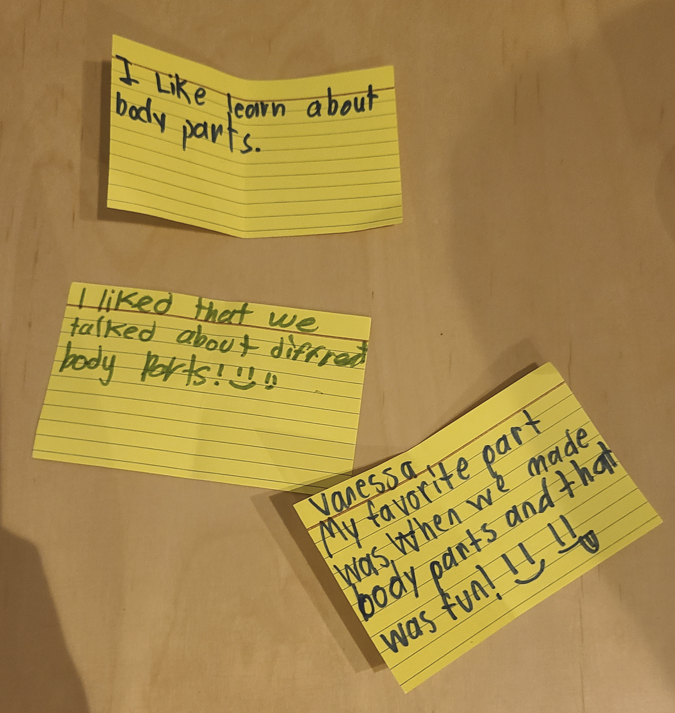 I Like learn about
body parts.
I liked that we
talked about diffrent
body parts!
Vanessa
My favorite part
was, When we made
body parts and that
was fun!